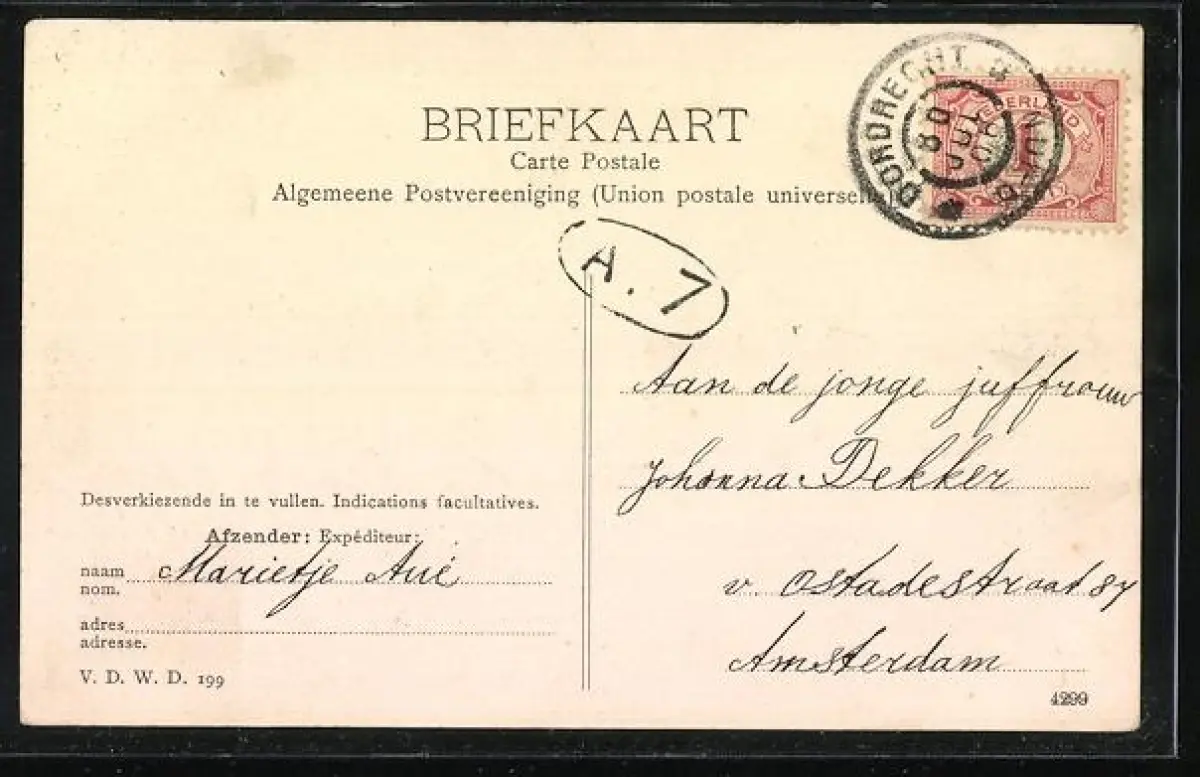 BRIEFKAART
Carte Postale
Algemeene Postvereeniging (Union postale
DORDRECHT
NEDERLAND
A. 7
Aan de jonge juffrouw
Johanna Dekker
v. Ostadestraat 87
Amsterdam
Desverkiezende in te vullen. Indications facultatives.
Afzender: Expéditeur:
naam Marietje
nom.
adres
adresse.
V. D. W. D. 199
4299